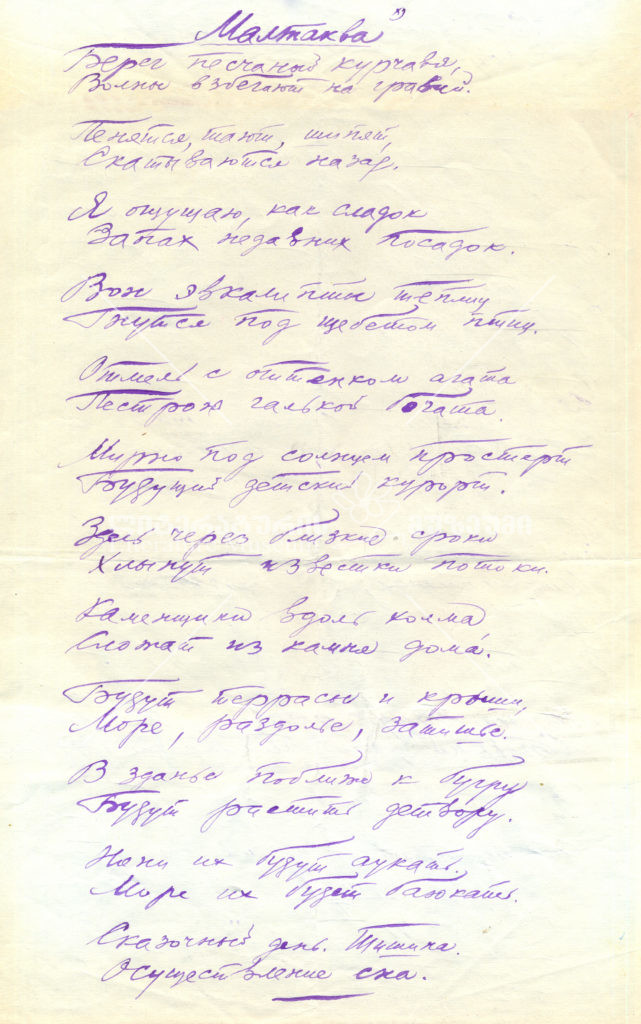 Малтаква x)
Берег песчаный курчавя,
Волны взбегают на гравий.
Пенятся, тают, шипят,
Скатываются назад.
Я ощущаю, как сладок
Запах недавних посадок.
Вон эвкалипты теплиц
Гнутся под щебетом птиц.
Отмель с оттенком агата
Пестрою галькой богата.
Мирно под солнцем простёрт
Будущий детский курорт.
Здесь через близкие сроки
Хлынут известки потоки.
Каменщики вдоль холма
Сложат из камня дома.
Будут террасы и крыши,
Море, раздолье, затишье.
В зданьс поближе к бугру
Будут растить детвору.
Няни их будут аукать.
Море их будет баюкать.
Сказочный день. Тишина.
Осуществление сна.